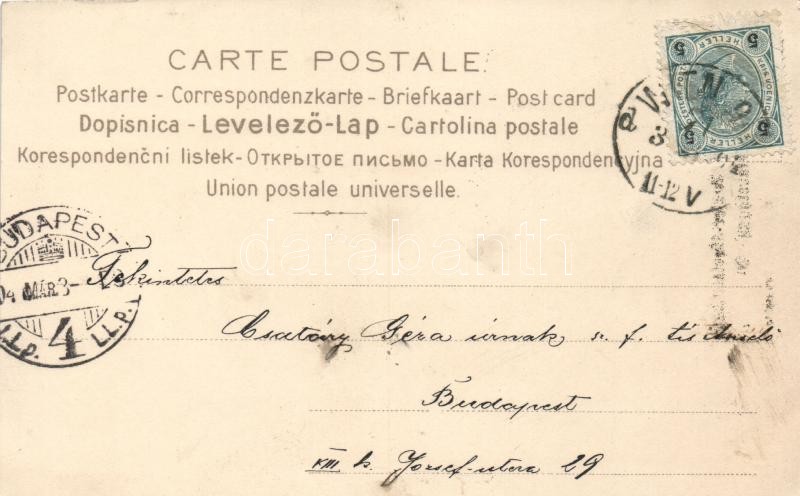 CARTE POSTALE.
Postkarte - Correspondenzkarte - Briefkaart - Post card
Dopisnica - Levelező-Lap - Cartolina postale
Korespondenční listek - Открытое письмо - Karta Korespondencyjna
Union postale universelle.
5 HELLER 5
WIEN
11-12 V
BUDAPEST
04 MÁR 3
4
I.I.p. I.I.p.
darabanth
Tekintetes
Csatáry Géza úrnak
Budapest
VIII k. József-utca 29